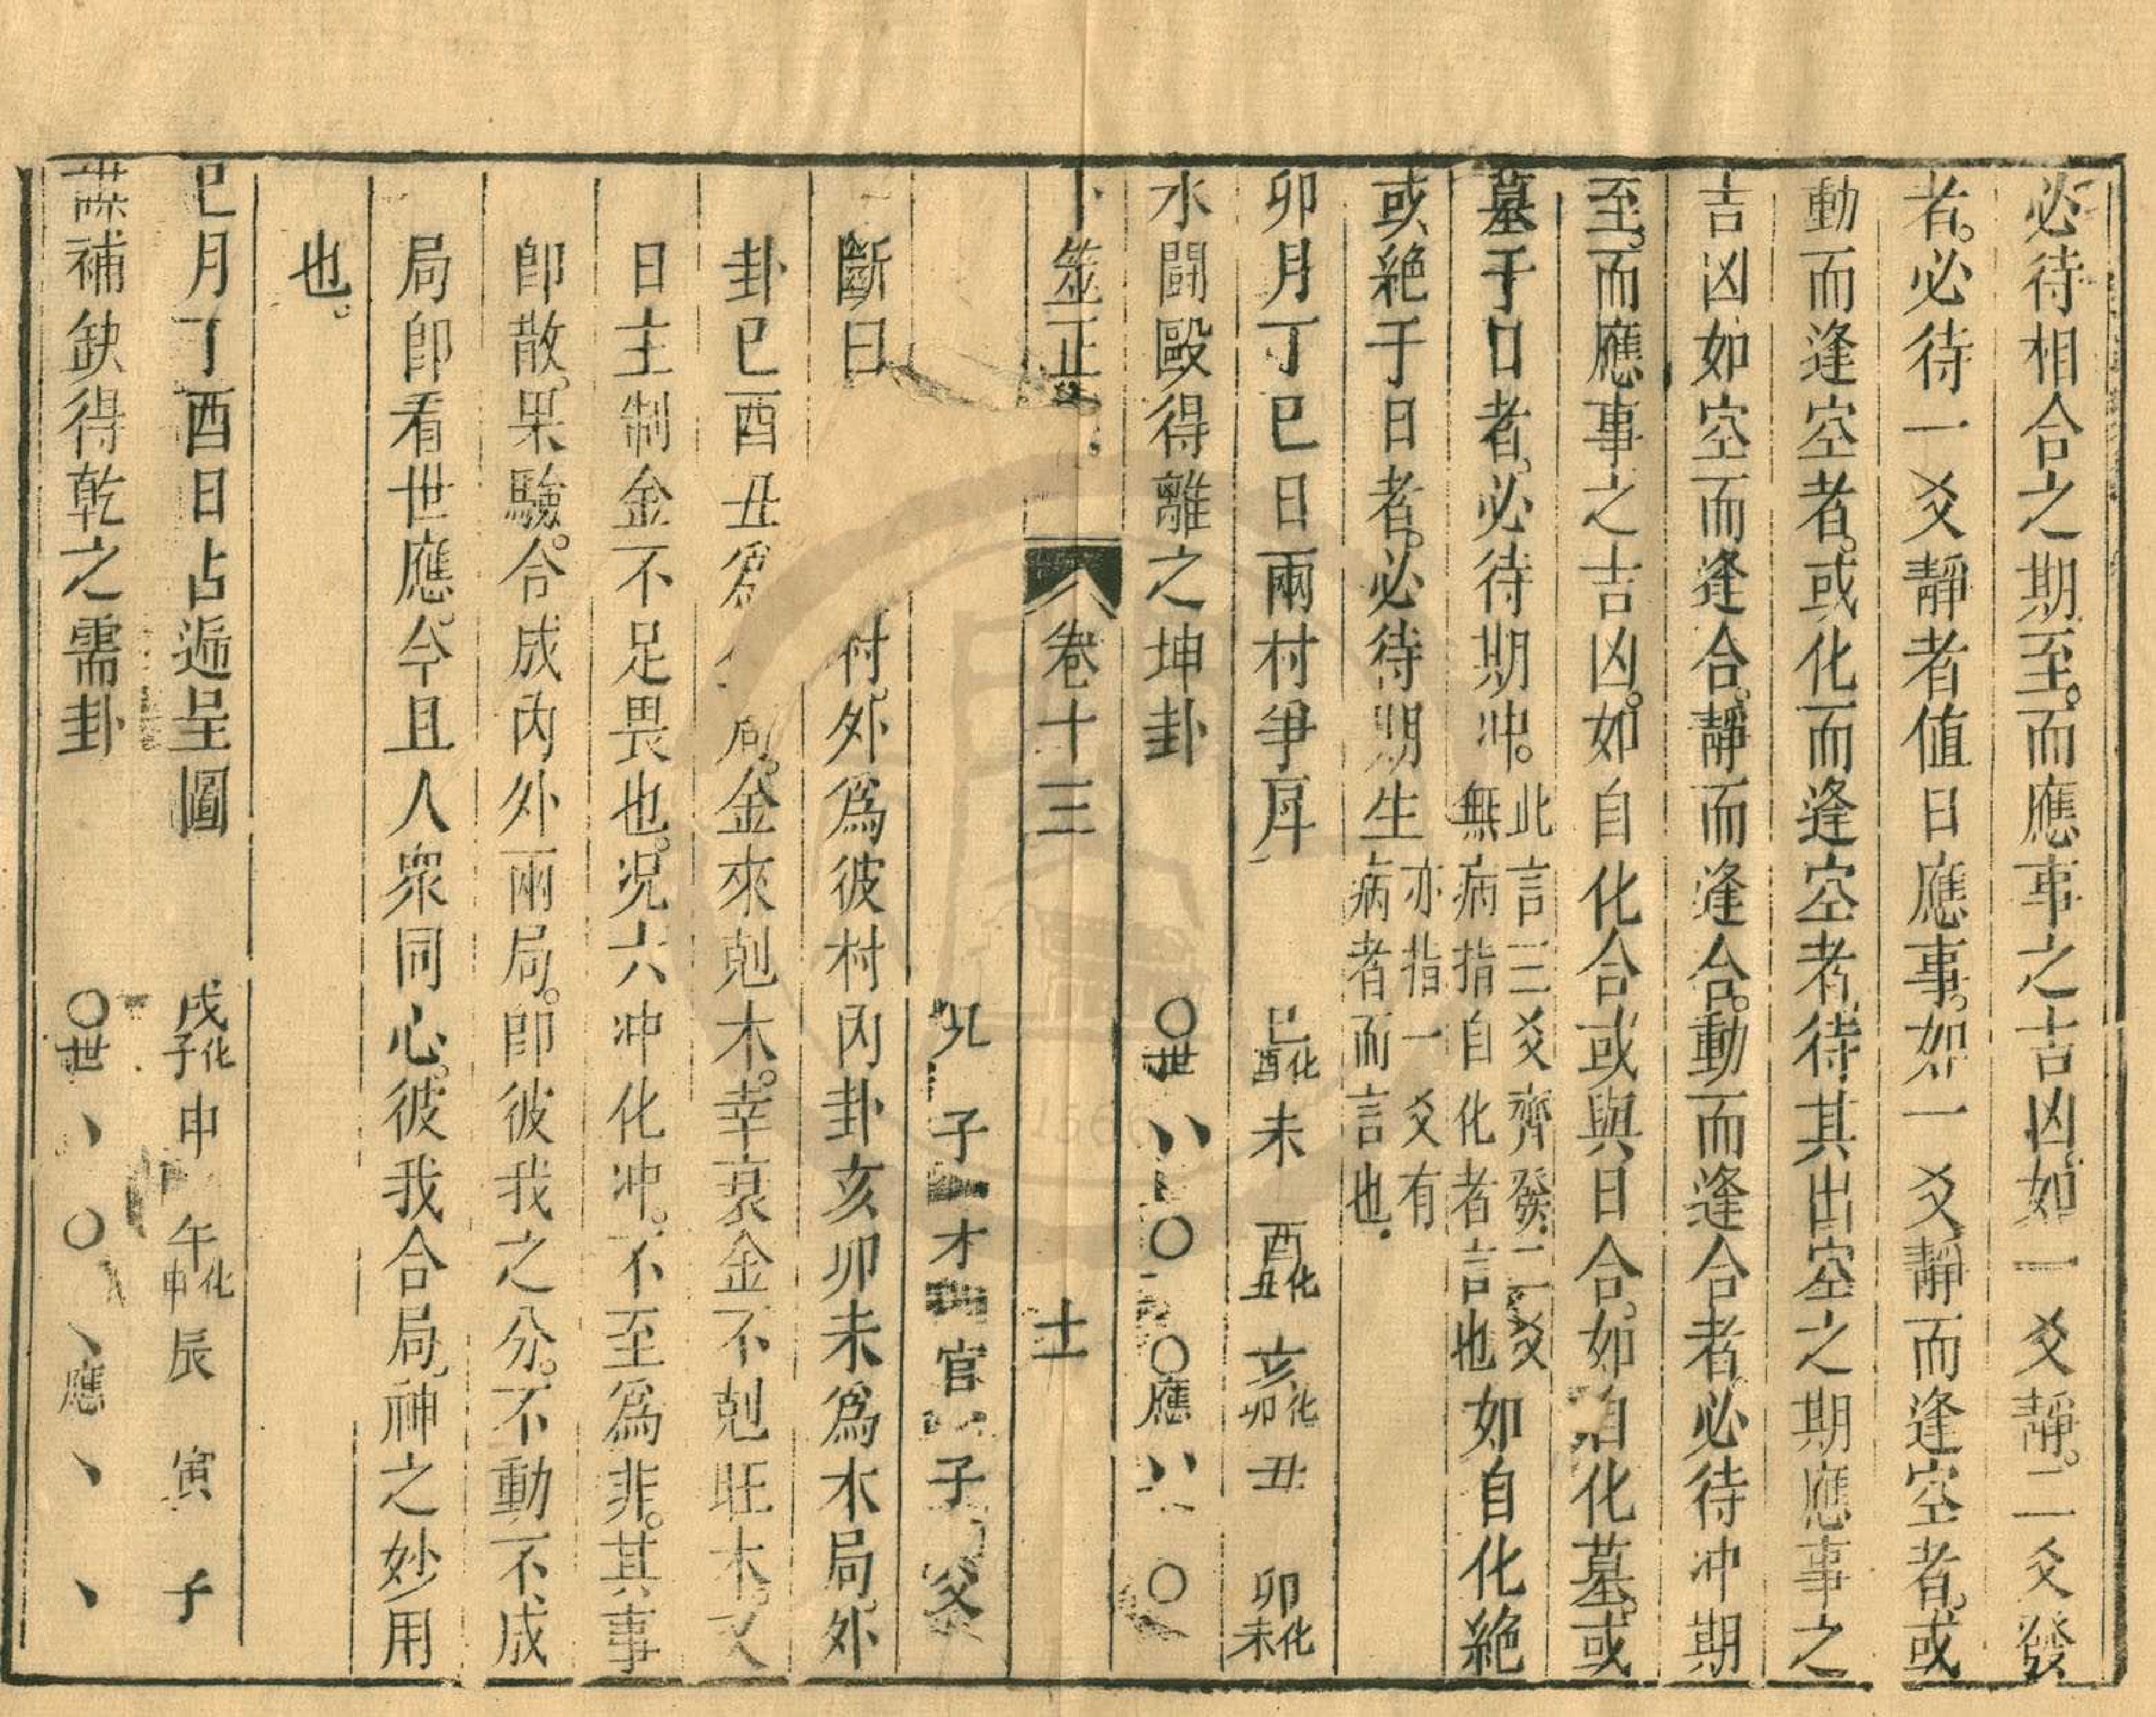 必待相合之期至。而應事之吉凶。如一爻靜。二爻發
者。必待一爻靜者值日應事。如一爻靜而逢空者。或
動而逢空者。或化而逢空者。待其出空之期應事之
吉凶。如空而逢合。靜而逢合。動而逢合者。必待冲期
至。而應事之吉凶。如自化合或與日合。如自化墓。或
墓于日者。必待期冲。此言三爻齊發。二爻無病指自化者言也如自化絕
或絕于日者。必待期生亦指一爻有病者而言也
卯月丁巳日兩村爭 巳化酉 未 酉化丑 亥化卯 丑 卯化未
水鬭毆得離之坤卦 〇世 〃 〇 〇應 〃 〇
卜筮正 卷十三 十二
兄 子 才 官 子 父
斷曰 村。外為彼村內卦亥卯未為木局。外
卦巳酉丑為 局。金來剋木。幸衰金不剋旺木。又
日主制金不足畏也。况六冲化冲。不至為非。其事
卽散。果驗。合成內外兩局。卽彼我之分。不動不成
局卽看世應。今且人衆同心。彼我合局。神之妙用
也。
巳月丁酉日占遞呈圖 戌化子 申 午化申 辰 寅 子
謀補缺得乾之需卦 〇世 丶 〇 丶應 丶 丶